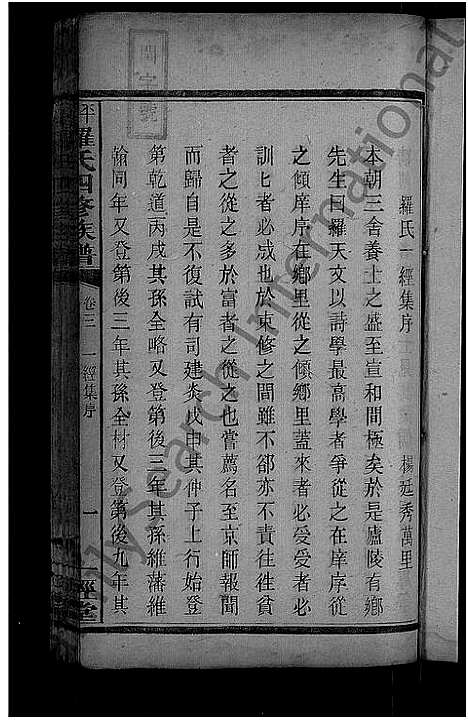 羅氏一經集序
楊廷秀萬里
本朝三舍養士之盛至宣和間極矣於是廬陵有鄉
先生曰羅天文以詩學最高學者爭從之在庠序從
之傾庠序在鄉里從之傾鄉里蓋來者必受受者必
訓匕者必成也於束修之間雖不卻亦不責往徃貧
者之從之多於富者之從之也嘗薦名至京師報聞
而歸自是不復試有司建炎戊申其仲子上行始登
第乾道丙戌其孫全略又登第後三年其孫維藩維
翰同年又登第後三年其孫全材又登第後九年其
羅氏四修族譜
卷三
一經集序
一
一經堂
My Search International